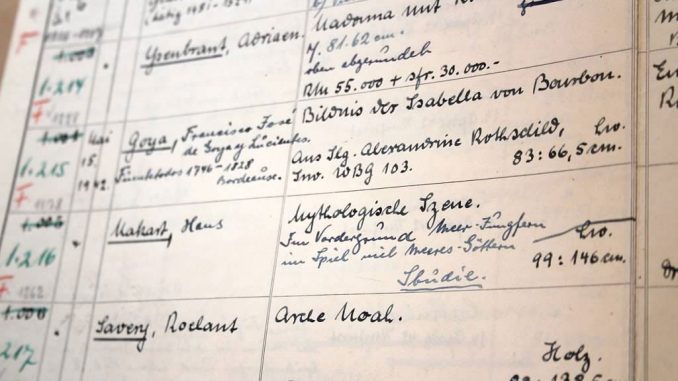 Madonna mit
Ysenbrant, Adriaen.
81.62 cm.
oben abgerundet
RM 55.000 + sfr. 30.000.-
1.214
F
Mai
15.
1942.
Goya, Francisco José
de Goya y Lucientes.
Fuentetodos 1746-1828
Bordeaux.
Bildnis der Isabella von Bourbon.
Aus Slg. Alexandrine Rothschild, Lw.
Inv. WBG 103. 83:66,5 cm.
1.215
F
Makart, Hans
Mythologische Szene.
Im Vordergrund Meer-Jungfern
im Spiel mit Meeres-Göttern
Lw.
99:146 cm.
Studie.
1.216
F
Savery, Roelant
Arche Noah.
Holz.
217